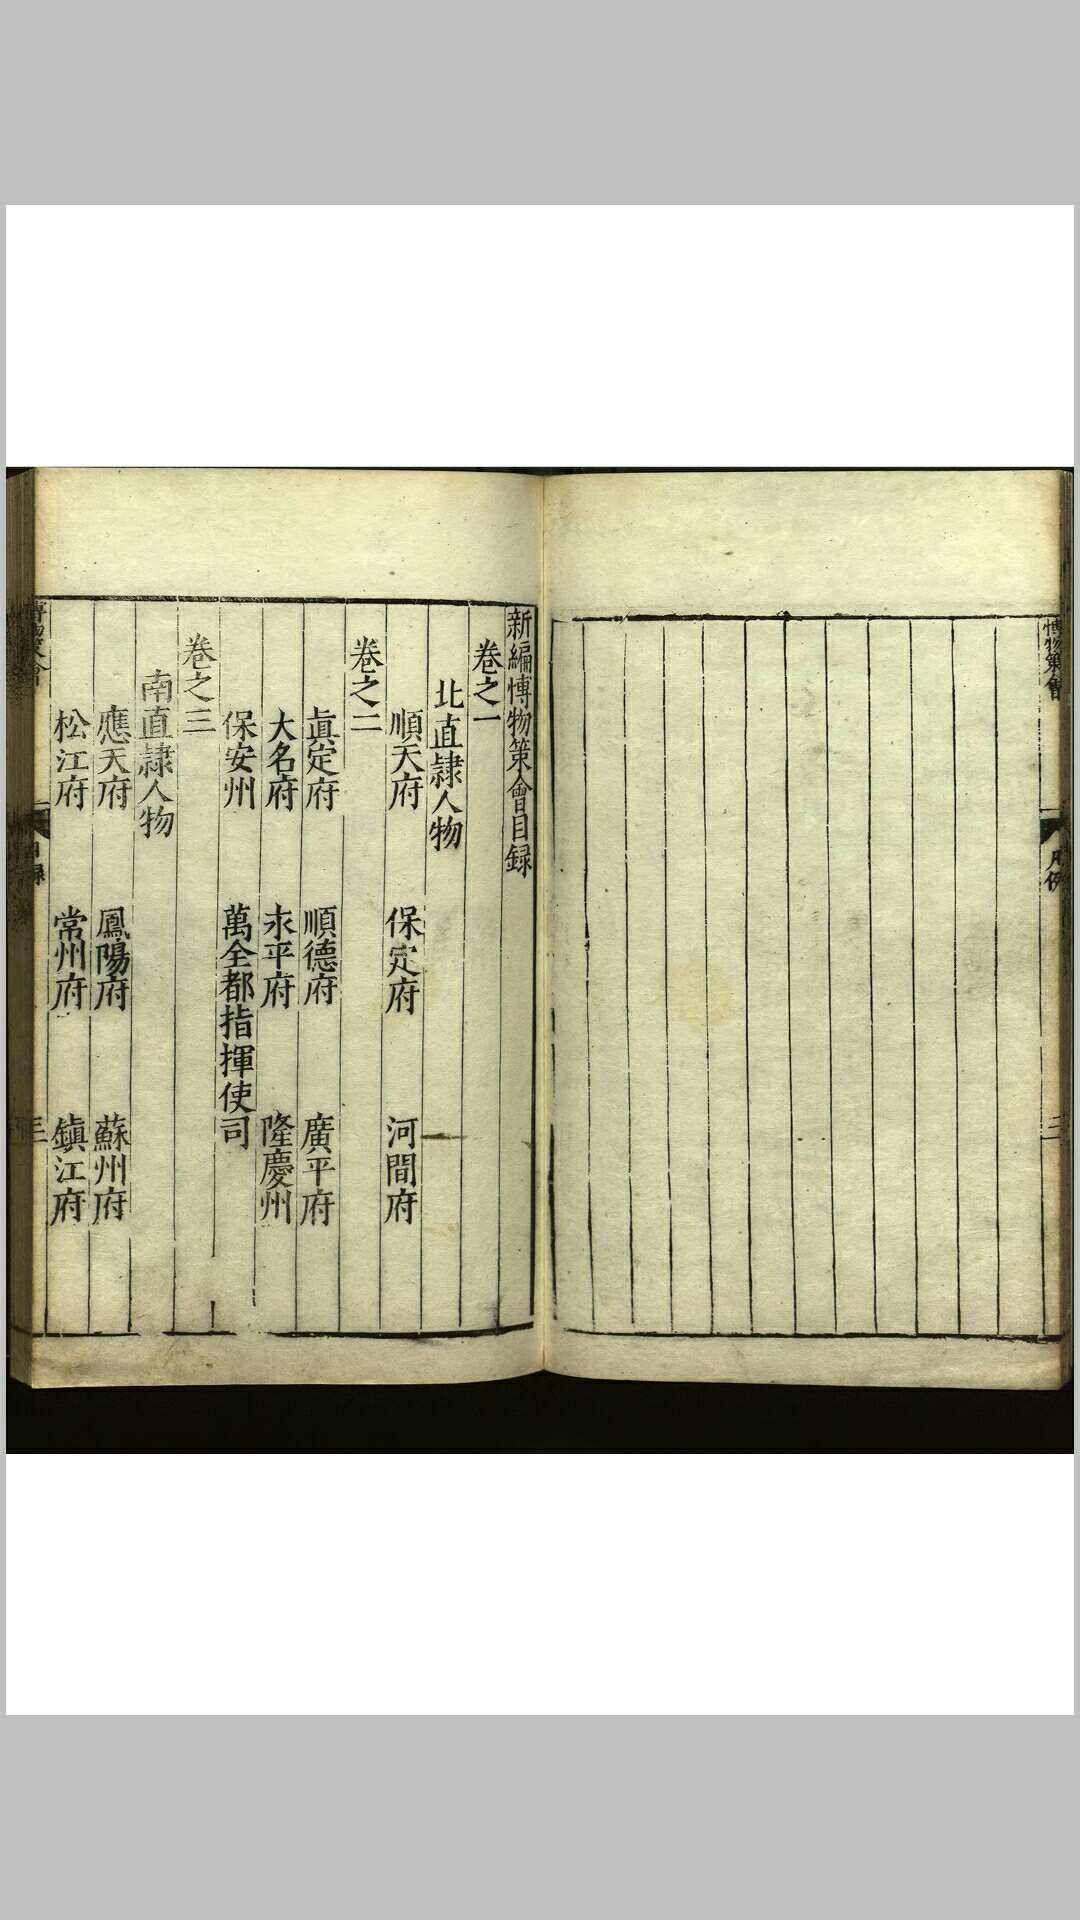 博物策會
凡例
三
新編博物策會目録
卷之一
北直隸人物
順天府 保定府 河間府
卷之二
眞定府 順德府 廣平府
大名府 永平府 隆慶州
保安州 萬全都指揮使司
卷之三
南直隸人物
應天府 鳳陽府 蘇州府
松江府 常州府 鎮江府
博物策會
目録